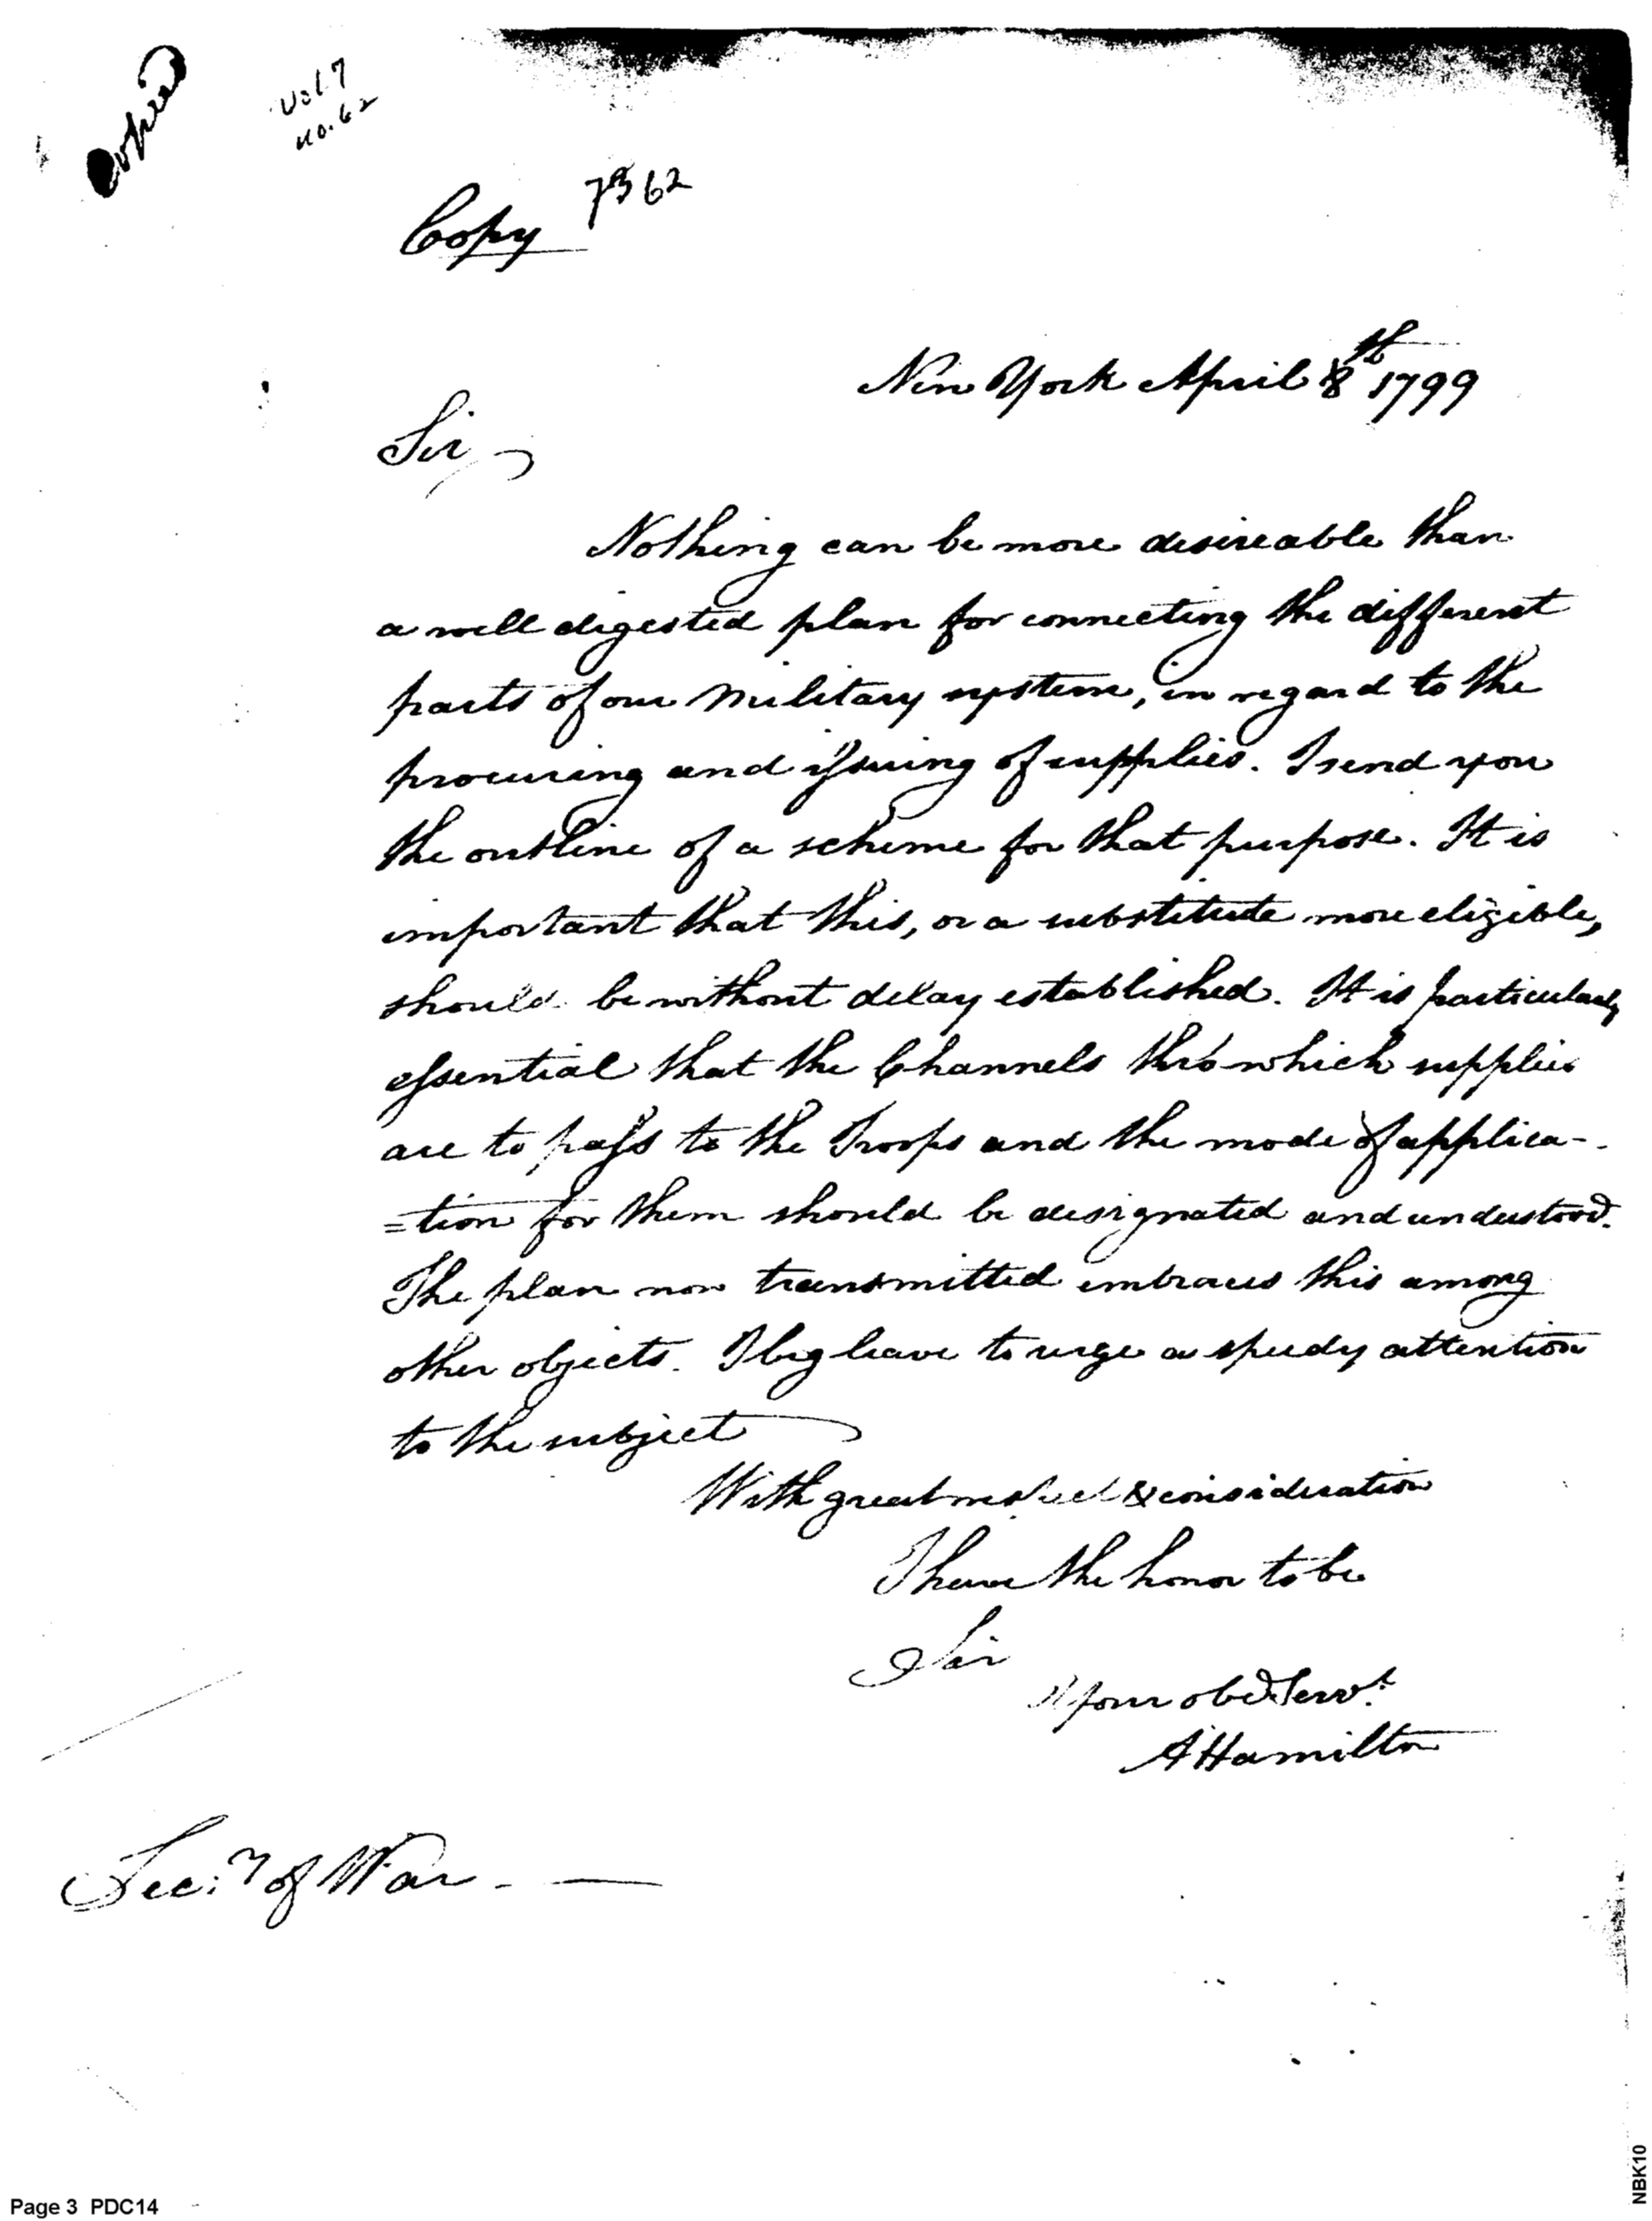 Copied
Vol 7
no. 62
7362
Copy
New York April 8th 1799
Sir,
Nothing can be more desireable than
a well digested plan for connecting the different
parts of our military system, in regard to the
procuring and issuing of supplies. I send you
the outline of a scheme for that purpose. It is
important that this, or a substitute more eligible,
should be without delay established. It is particularly
essential that the Channels thro' which supplies
are to pass to the Troops and the mode of applica-
=tion for them should be designated and understood.
The plan now transmitted embraces this among
other objects. I beg leave to urge a speedy attention
to the subject
With great respect & consideration
I have the honor to be
Sir
Your obed Servt.
A Hamilton
Sec:y of War. —
Page 3 PDC14
NBK10